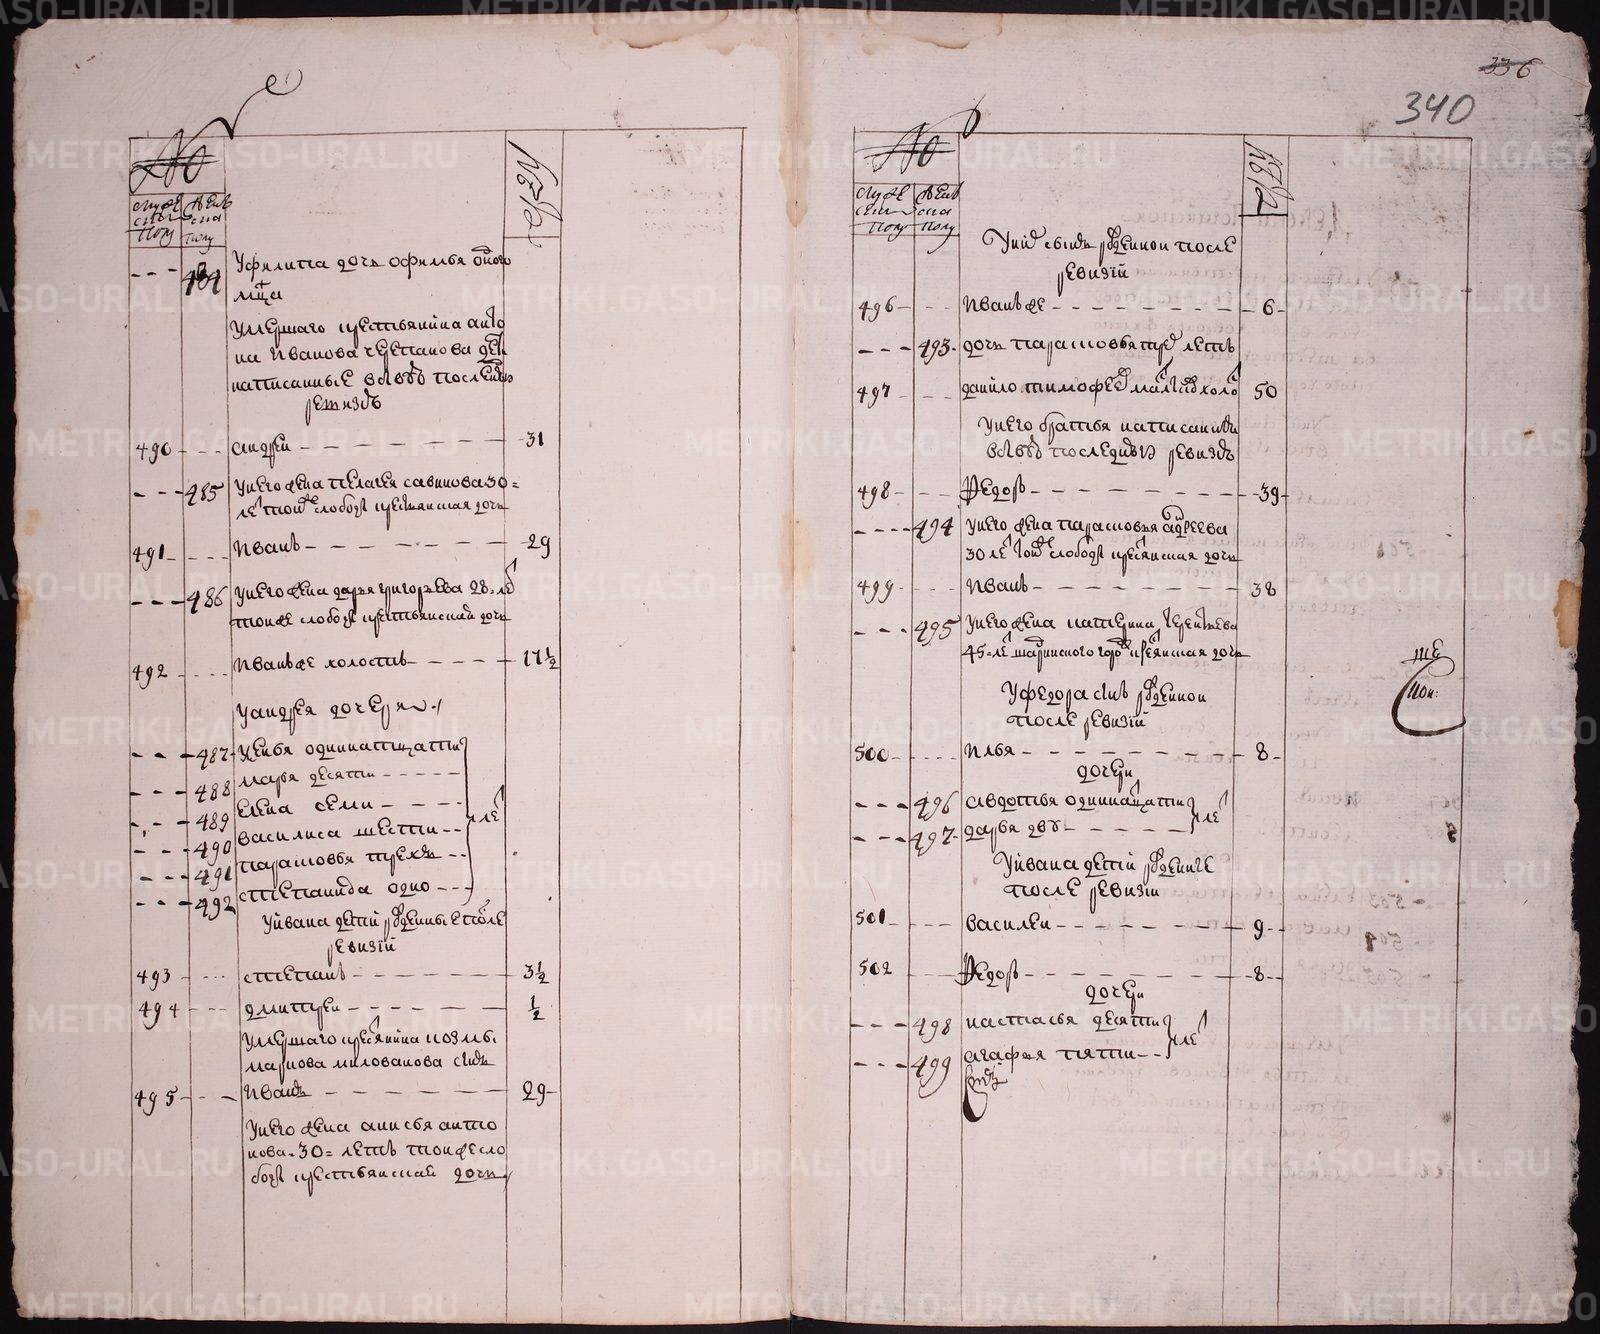 №
мужеска полу
женска полу
лѣта
484 У филипа дочь офимья одного
мсца
Умершаго крестьянина анто
на Иванова черепанова дети
написанные въ бывшую последнюю
ревизию
490 андрей 31
485 У него жена пелагея савинова 30 =
лет тои же слободы крестьянская дочь
491 Иванъ 29
486 У него жена дарья григорьева 28 = лет
тои же слободы крестьянская дочь
492 Иванъ же холостъ 17 1/2
У андрея дочери
487 Ксенья одиннатцати
488 марья десяти
489 елена семи
490 василиса шести лет
491 парасковья трехъ
492 степанида одного
У ивана дети рожденные после
ревизии
493 степанъ 3 1/2
494 дмитрей 1/2
Умершаго крестьянина козмы
маркова милованова сынъ
495 Иванъ 29
У него жена анисья анто
нова = 30 = летъ тои же сло
боды крестьянская дочь
336
340
№
мужеска полу
женска полу
лѣта
У них сынъ рожденнои после
ревизии
496 Иванъ же 6
493 дочь парасковья трех летъ
497 данило тимофеев холостъ 50
У него братья написанные
въ бывшую последнюю ревизию
498 Федоръ 39
494 У него жена парасковья андреева
30 лет тои же слободы крестьянская дочь
499 Иванъ 38
495 У него жена катерина
45 = лет крестьянская дочь
У федора сынъ рожденнои
после ревизии
500 Илья 8
дочери
496 авдотья одиннатцати лет
497 дарья дву
У ивана дети рожденные
после ревизии
501 василей 9
502 Федоръ 8
дочери
498 настасья десяти лет
499 агафья пяти